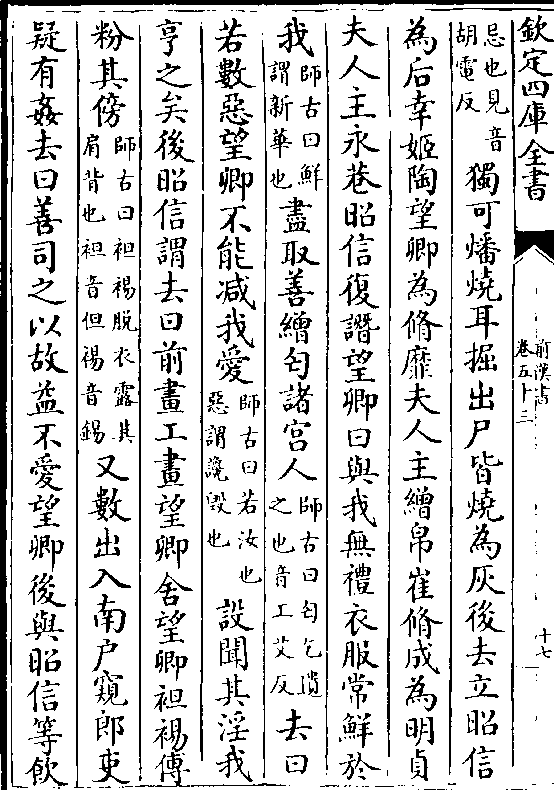 欽定四庫全書
前漢書
卷五十三
十七
忌也見音
胡電反
獨可燔燒耳掘出尸皆燒為灰後去立昭信
為后幸姬陶望卿為脩靡夫人主繒帛崔脩成為明貞
夫人主永巷昭信復譖望卿曰與我無禮衣服常鮮於
我師古曰鮮謂新華也盡取善繒匄諸宮人師古曰匄乞遺之也音工艾反去曰
若數惡望卿不能減我愛師古曰若汝也惡謂讒毁也設聞其淫我
亨之矣後昭信謂去曰前畫工畫望卿舍望卿袒裼傅
粉其傍師古曰袒裼脫衣露其肩背也袒音但裼音錫又數出入南户窺郎吏
疑有姦去曰善司之以故益不愛望卿後與昭信等飲